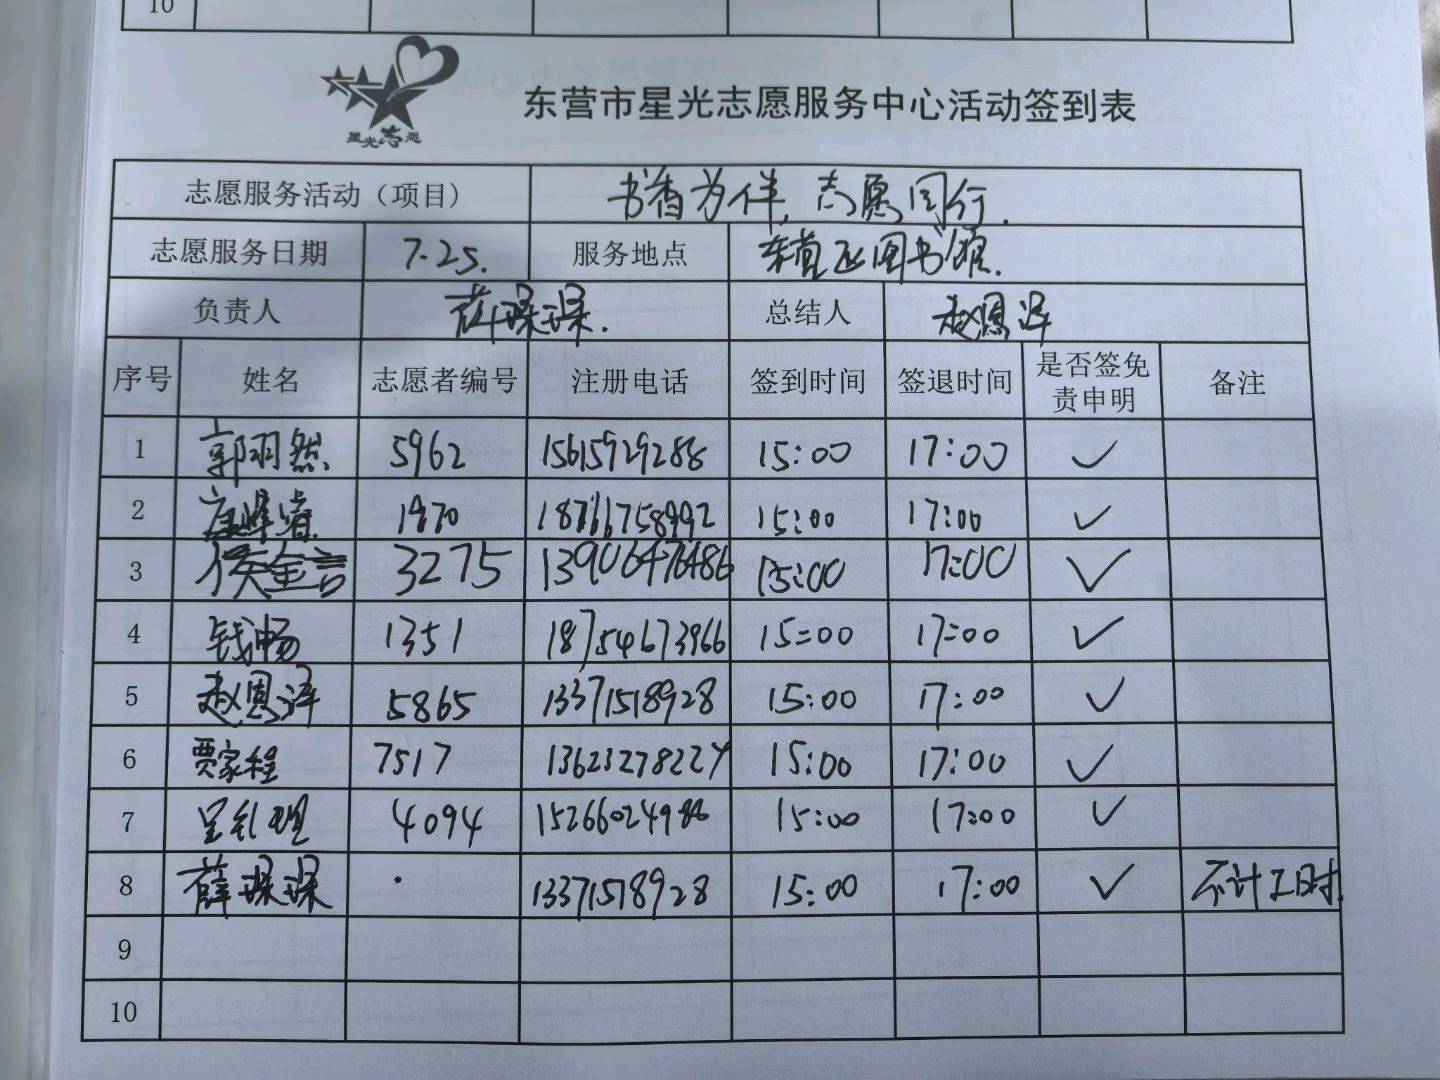 10
星光志愿
东营市星光志愿服务中心活动签到表
志愿服务活动（项目） 书香为伴,志愿同行.
志愿服务日期 7.25. 服务地点 东营区图书馆.
负责人 薛琛琛. 总结人 赵恩泽
序号 姓名 志愿者编号 注册电话 签到时间 签退时间 是否签免责申明 备注
1 郭羽然 5962 15615929288 15:00 17:00 ✓
2 1970 15:00 17:00 ✓
3 侯金言 3275 13906476486 15:00 17:00 ✓
4 钱畅 1351 18754673966 15:00 17:00 ✓
5 赵恩泽 5865 13371518928 15:00 17:00 ✓
6 贾家程 7517 13623278227 15:00 17:00 ✓
7 4094 15:00 17:00 ✓
8 薛琛琛 · 13371518928 15:00 17:00 ✓ 不计工时.
9
10